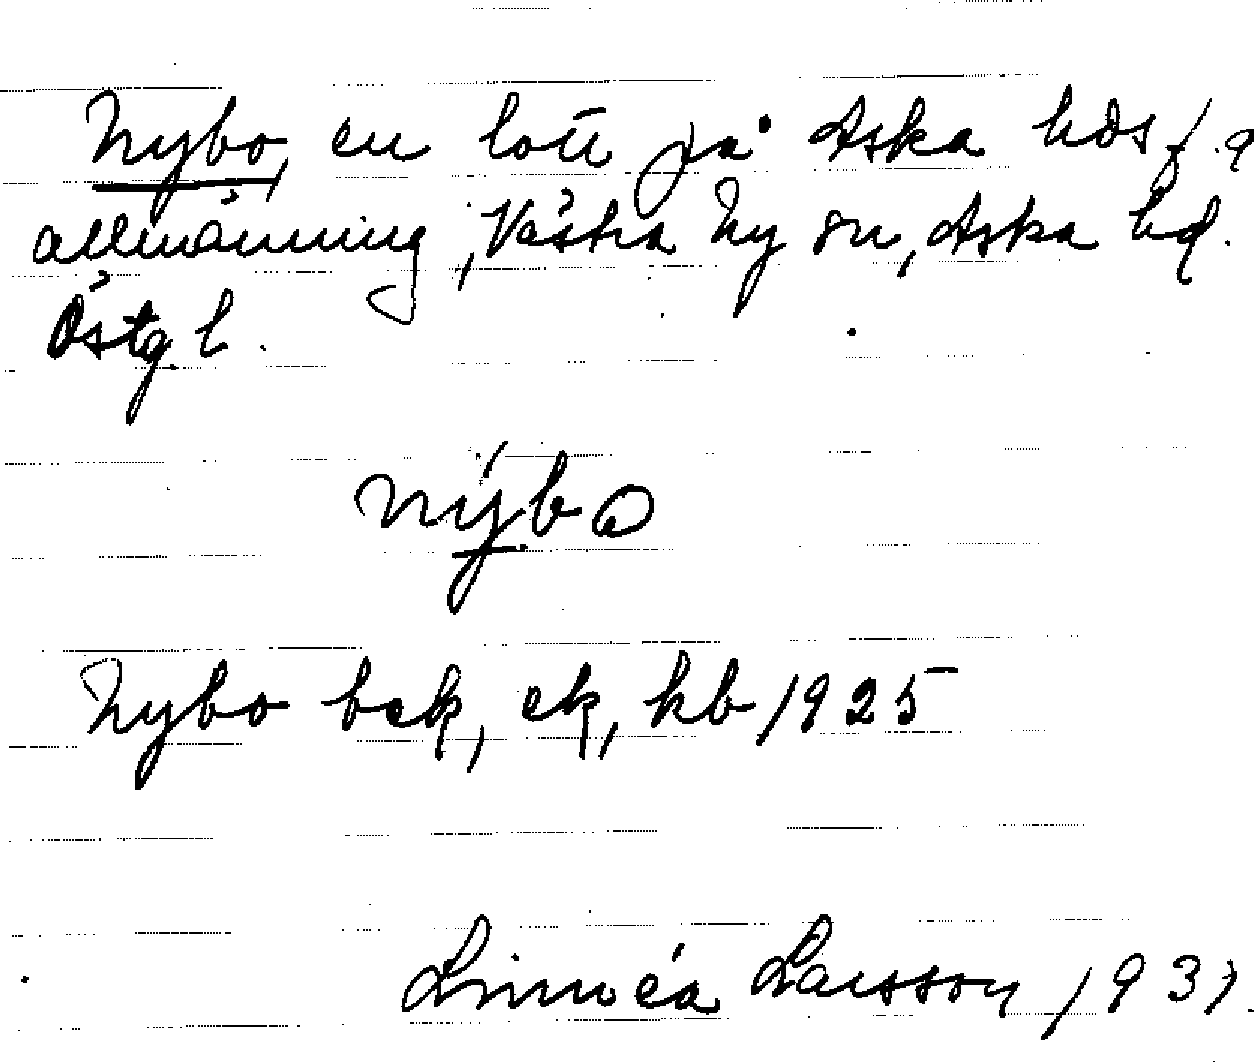 Nybo, en lott på Aska hds f.a
allmänning, Västra Ny sn, Aska hd.
Östg l.
nýbo
Nybo bek, ek, kb 1925
Linnéa Larsson 193